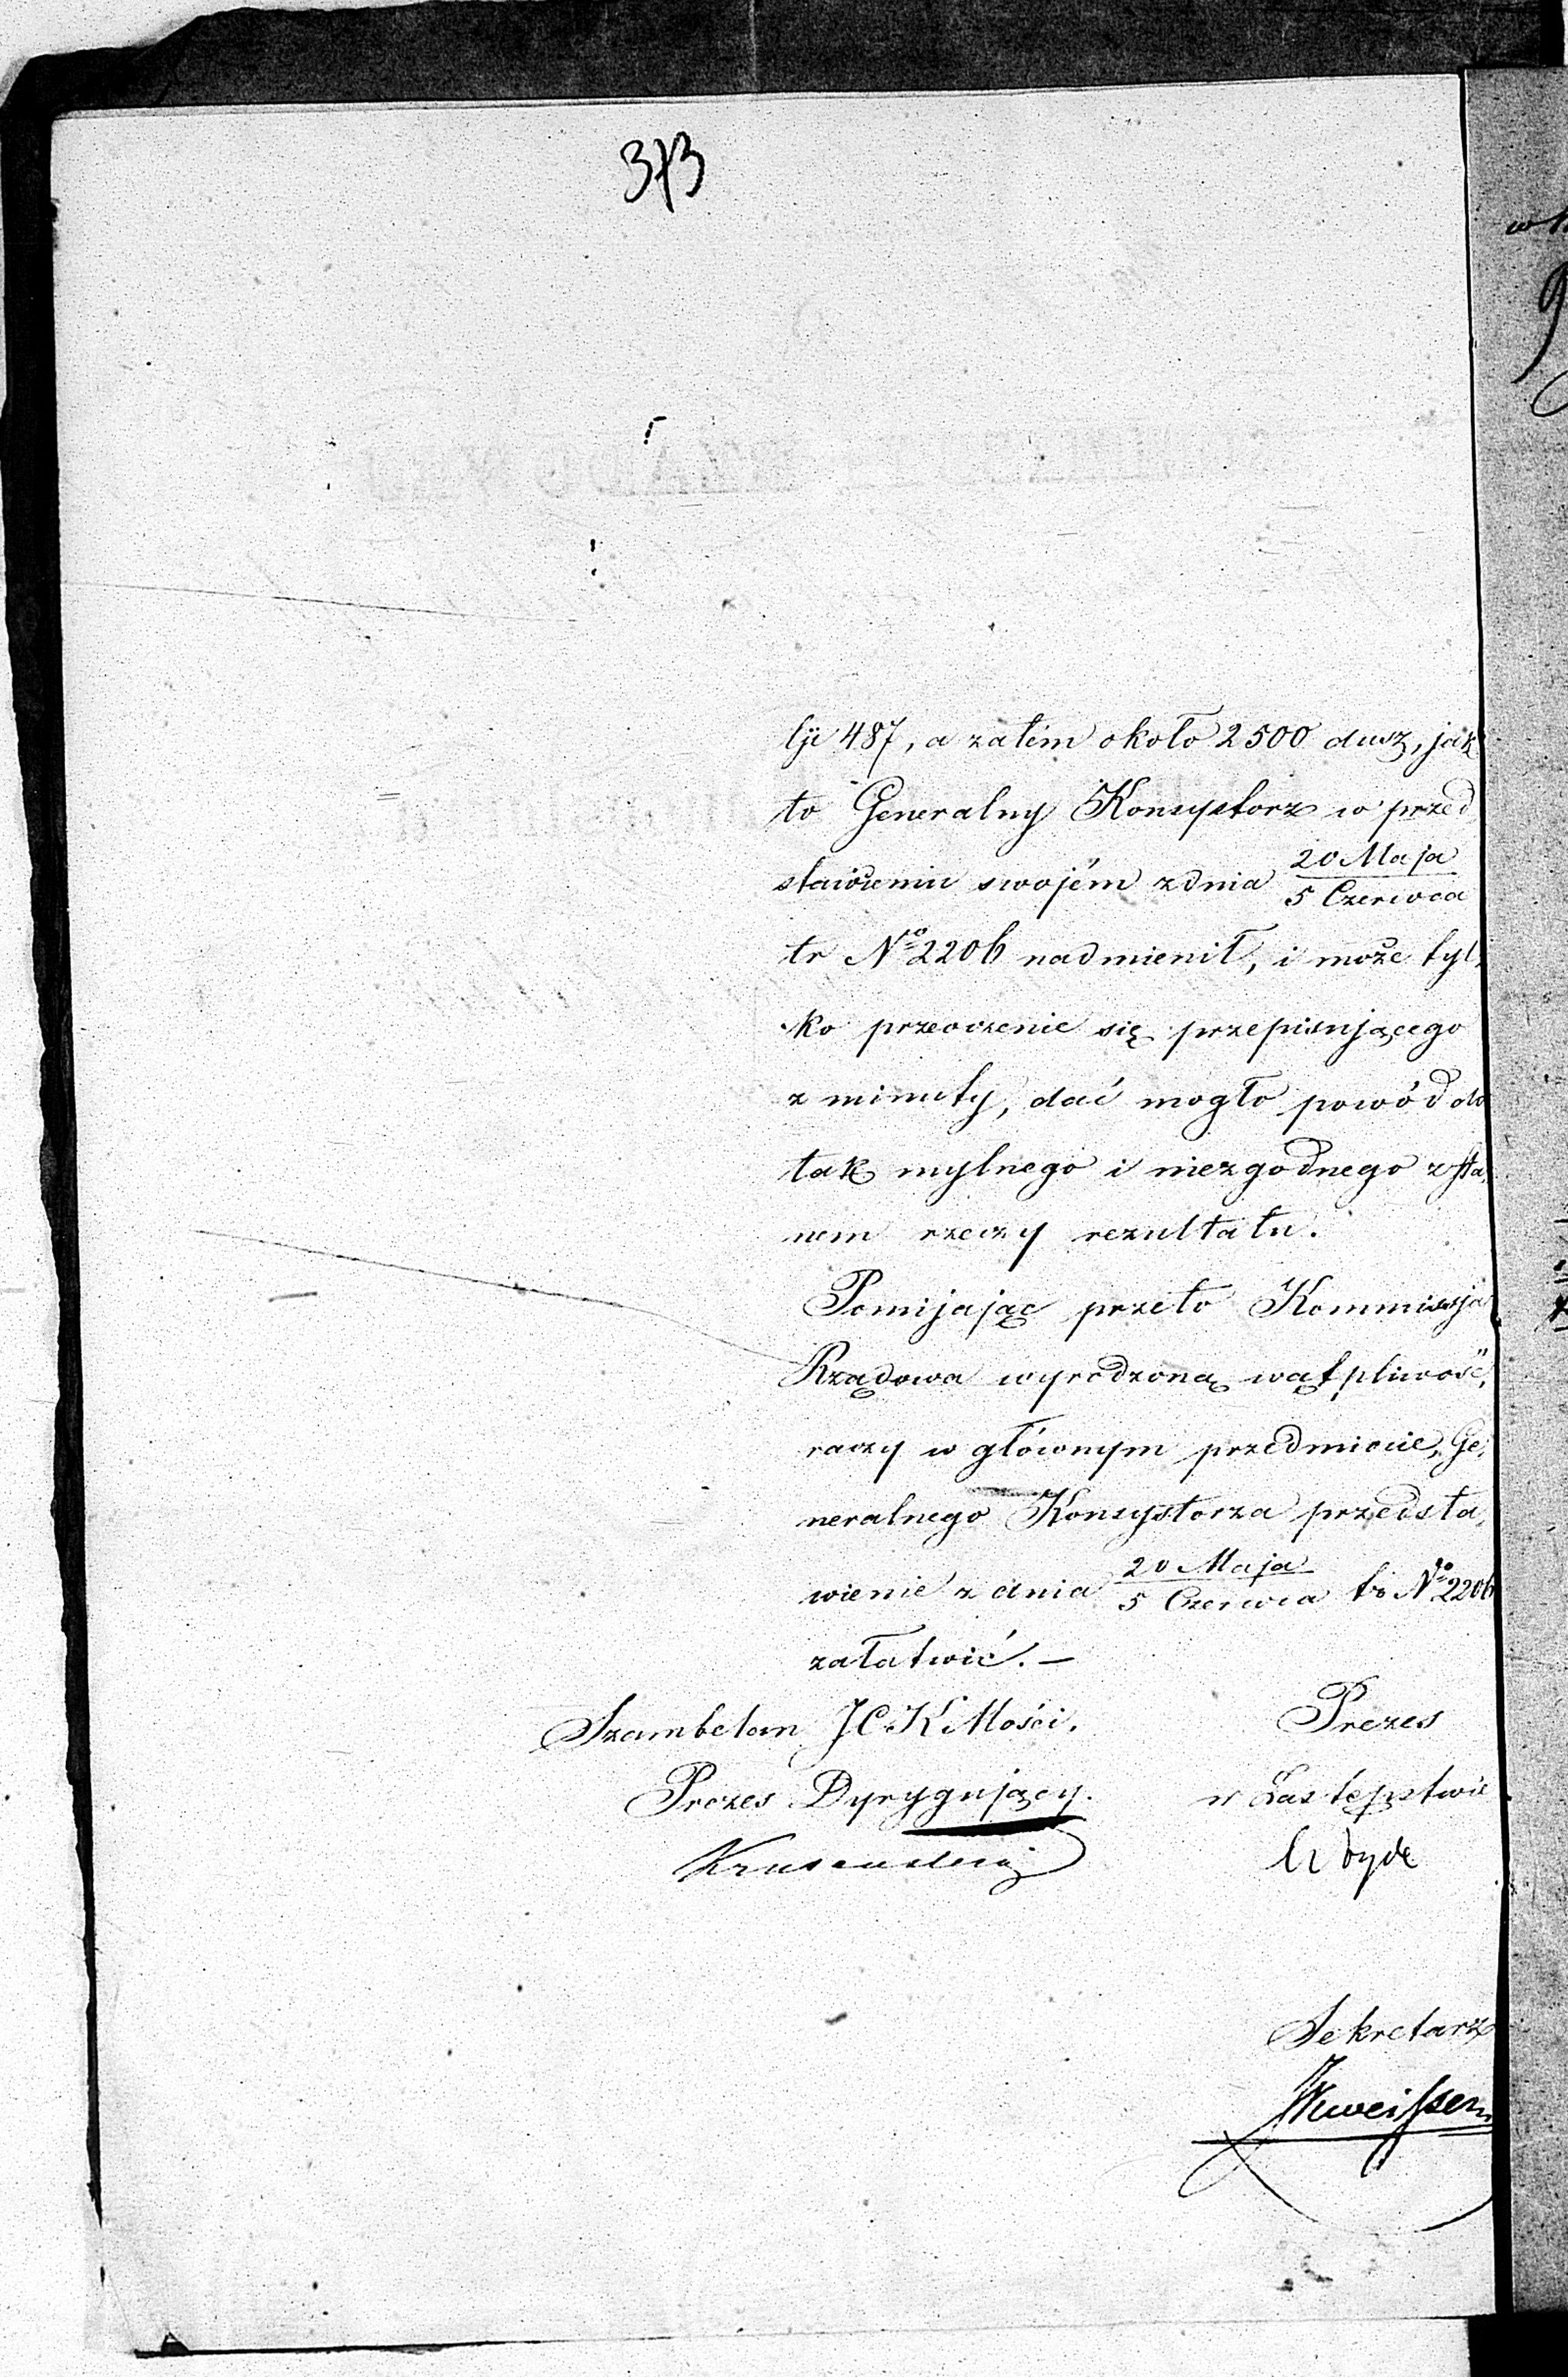 373
lji 487, a zatém około 2500 dusz, jak
to Generalny Konsystorz w przed
stawieniu swojém z dnia 20 Maja / 5 Czerwca
tr Nº 2206 nadmienił, i może tyl-
ko przeoczenie się przepisującego
z minuty, dać mogło powód do
tak mylnego i niezgodnego z sta-
nem rzeczy rezultatu.
Pomijając przeto Kommissja
Rządowa wyrodzoną wątpliwość,
raczy w głównym przedmiocie, Ge-
neralnego Konsystorza przedsta-
wienie z dnia 20 Maja / 5 Czerwca tr Nº 2206
załatwić. —
Szambelan JCK Mości. Prezes
Prezes Dyrygujący. w Zastępstwie
Sekretarz